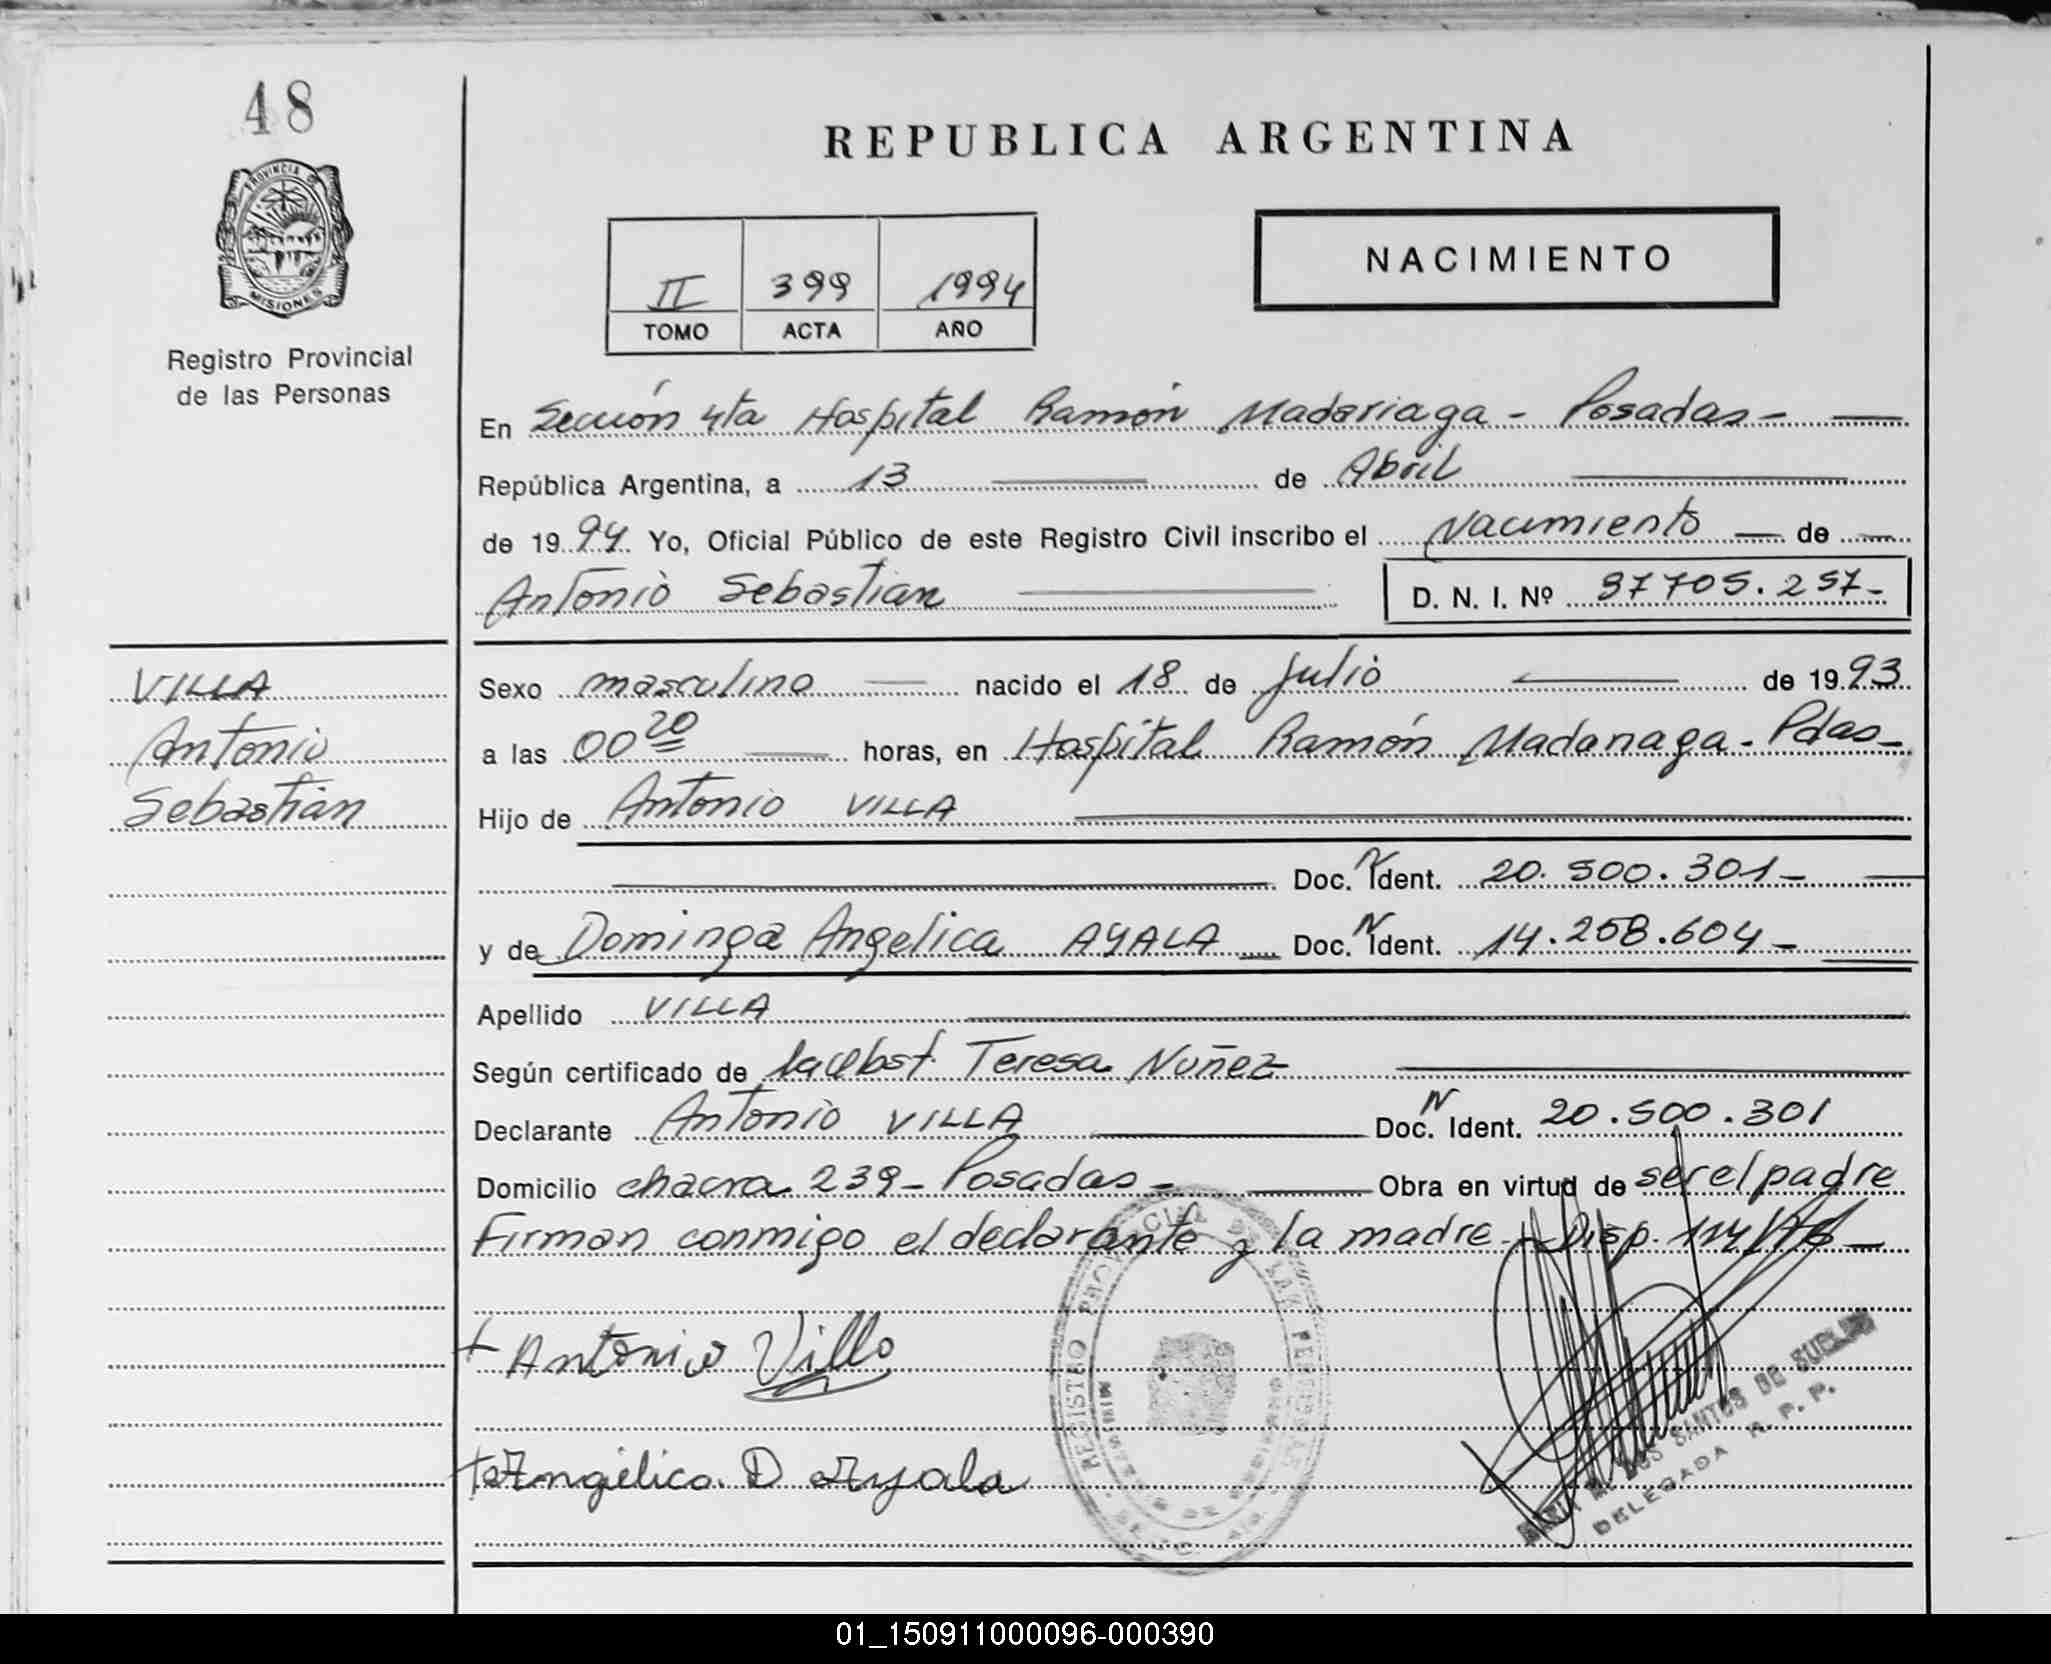 48
PROVINCIA DE
MISIONES
Registro Provincial
de las Personas
REPUBLICA ARGENTINA
II 399 1994
TOMO ACTA AÑO
NACIMIENTO
En Sección 4ta Hospital Ramón Madariaga - Posadas -
República Argentina, a 13 de Abril
de 1994 Yo, Oficial Público de este Registro Civil inscribo el Nacimiento de
Antonio Sebastian D. N. I. Nº 37705.257-
VILLA
Antonio
Sebastián
Sexo masculino nacido el 18 de Julio de 1993
a las 00 20 horas, en Hospital Ramón Madariaga - Pdas -
Hijo de Antonio VILLA
Doc. N Ident. 20.500.301 -
y de Dominga Angelica AYALA Doc. N Ident. 14.258.604 -
Apellido VILLA
Según certificado de Teresa Nuñez
Declarante Antonio VILLA Doc. N Ident. 20.500.301
Domicilio chacra 239 - Posadas - Obra en virtud de ser el padre
Firman conmigo el declarante y la madre - Disp.
+ Antonio Villa
+ Angélica D Ayala
REGISTRO PROVINCIAL DE LAS PERSONAS
SANTOS DE
DELEGADA R. P. P.
01_150911000096-000390